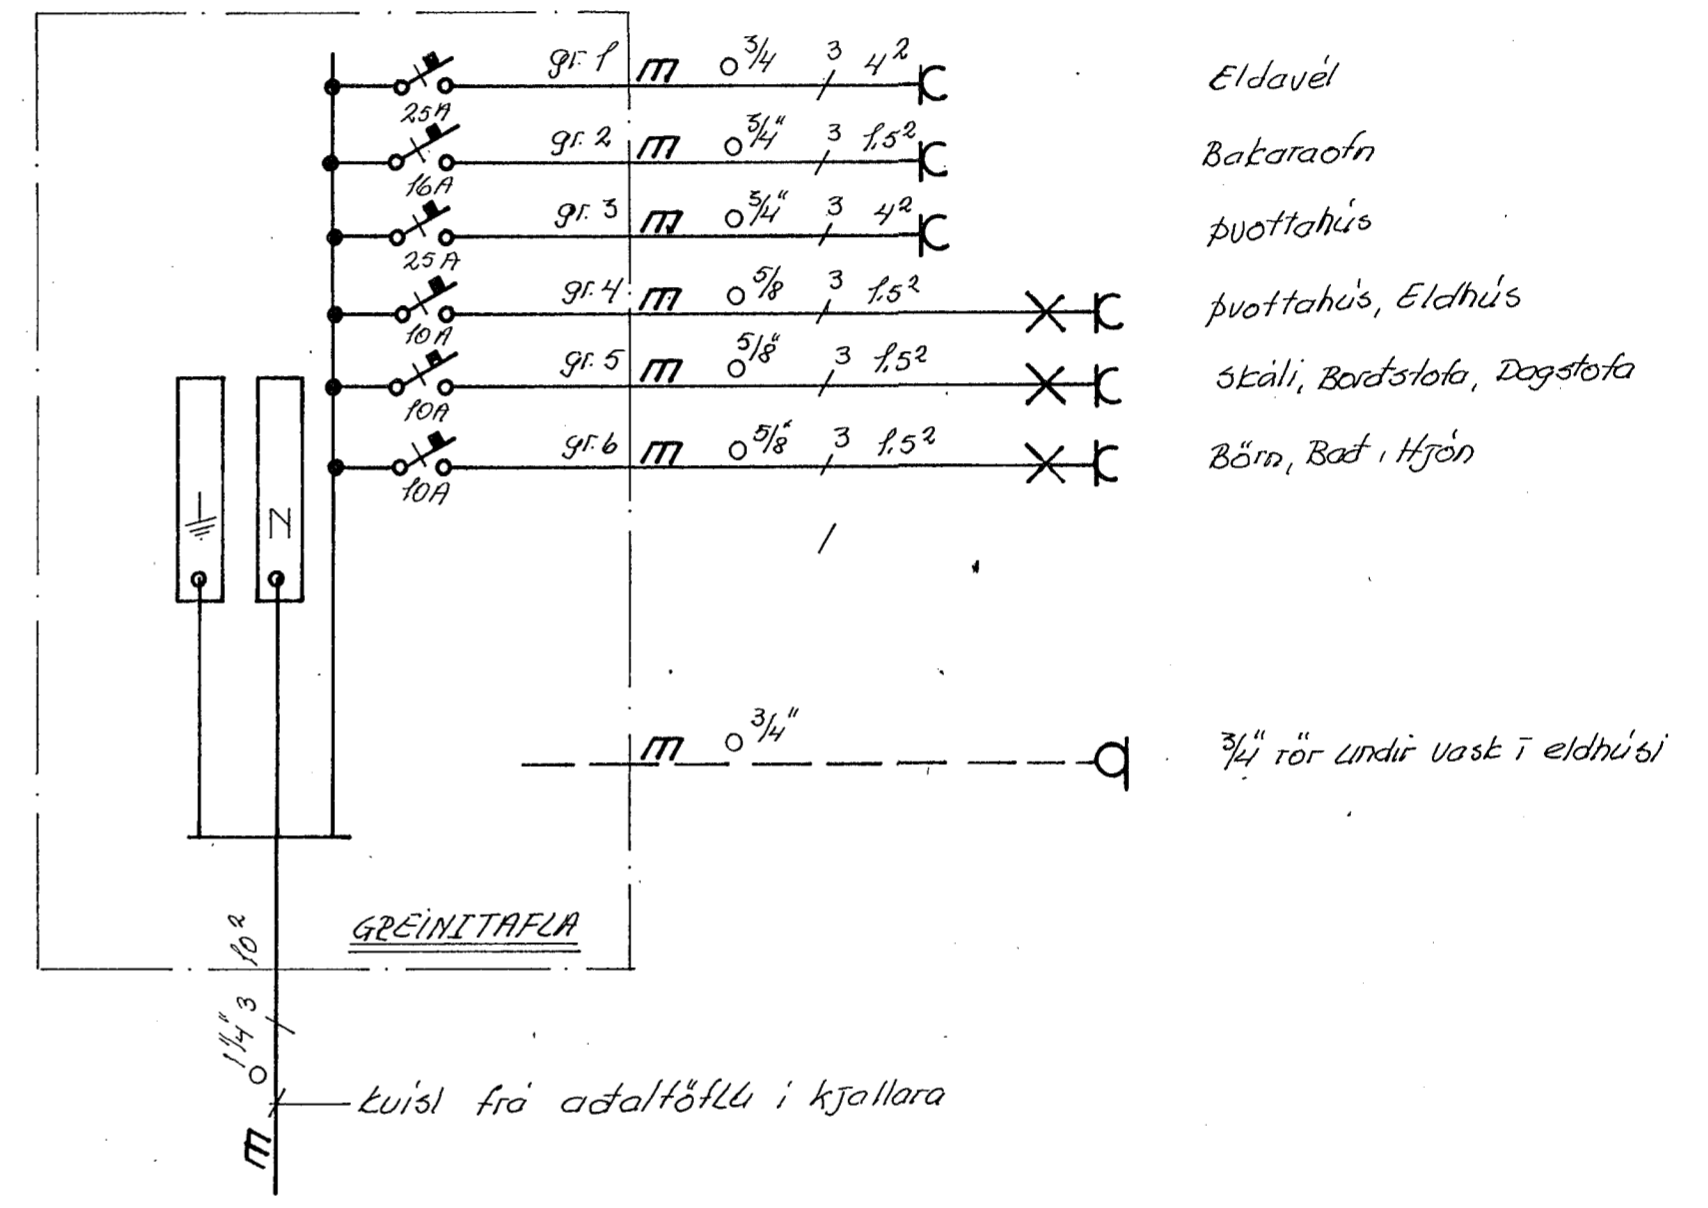 gr. 1 3/4 3 4² Eldavél
25A
gr. 2 3/4" 3 1,5² Bakaraofn
16A
gr. 3 3/4" 3 4² Þvottahús
25A
gr. 4 5/8 3 1,5² Þvottahús, Eldhús
10A
gr. 5 5/8" 3 1,5² Skáli, Borðstofa, Dagstofa
10A
gr. 6 5/8" 3 1,5² Börn, Bað, Hjón
10A
N
3/4" 3/4" rör undir vask í eldhúsi
GREINITAFLA
1 1/4" 3 10²
kvísl frá aðaltöflu í kjallara